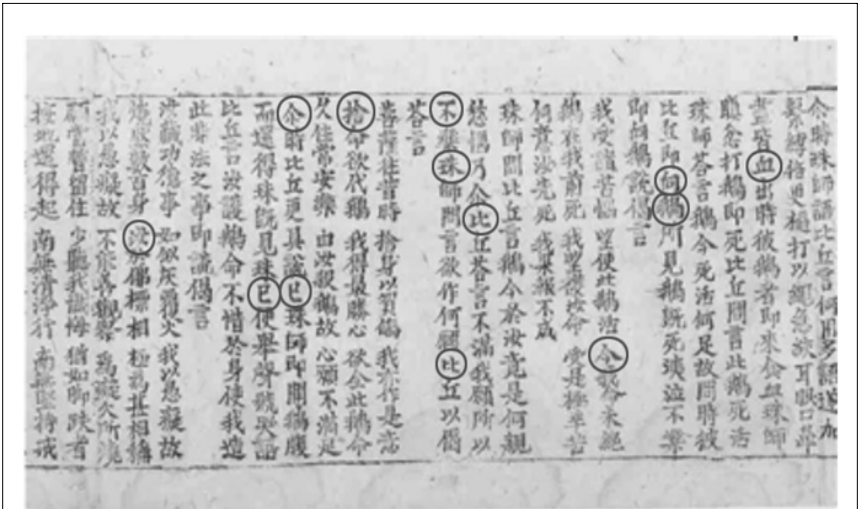 尒時珠師語比丘言何用多語遂加
繫縛倍更撾打以繩急絞耳眼口鼻
盡皆血出時彼鵝者即來食血珠師
瞋忿打鵝即死比丘問言此鵝死活
珠師荅言鵝今死活何足故問時彼
比丘即向鵝所見鵝既死涕泣不樂
即向鵝說偈言
我受諸苦惱 望使此鵝活 今我命未絕
鵝在我前死 我望護汝命 受是極辛苦
何意汝先死 我果報不成
珠師問比丘言鵝今於汝竟是何親
愁惱乃尒比丘荅言不滿我願所以
不樂珠師問言欲作何願比丘以偈
荅言
菩薩往昔時 捨身以貿鴿 我亦作是意
捨命欲代鵝 我得最勝心 欲全此鵝命
久住常安樂 由汝殺鵝故 心願不滿足
尒時比丘更具說已珠師即開鵝腹
而還得珠既見珠已便舉聲號哭語
比丘言汝護鵝命不惜於身使我造
此非法之事即說偈言
汝藏功德事 如似灰覆火 我以愚癡故
燒惱數百身 汝於佛標相 極為甚相稱
我以愚癡故 不能善觀察 為癡火所燒
願當暫留住 少聽我懺悔 猶如腳跌者
按地還得起 南無清淨行 南無堅持戒